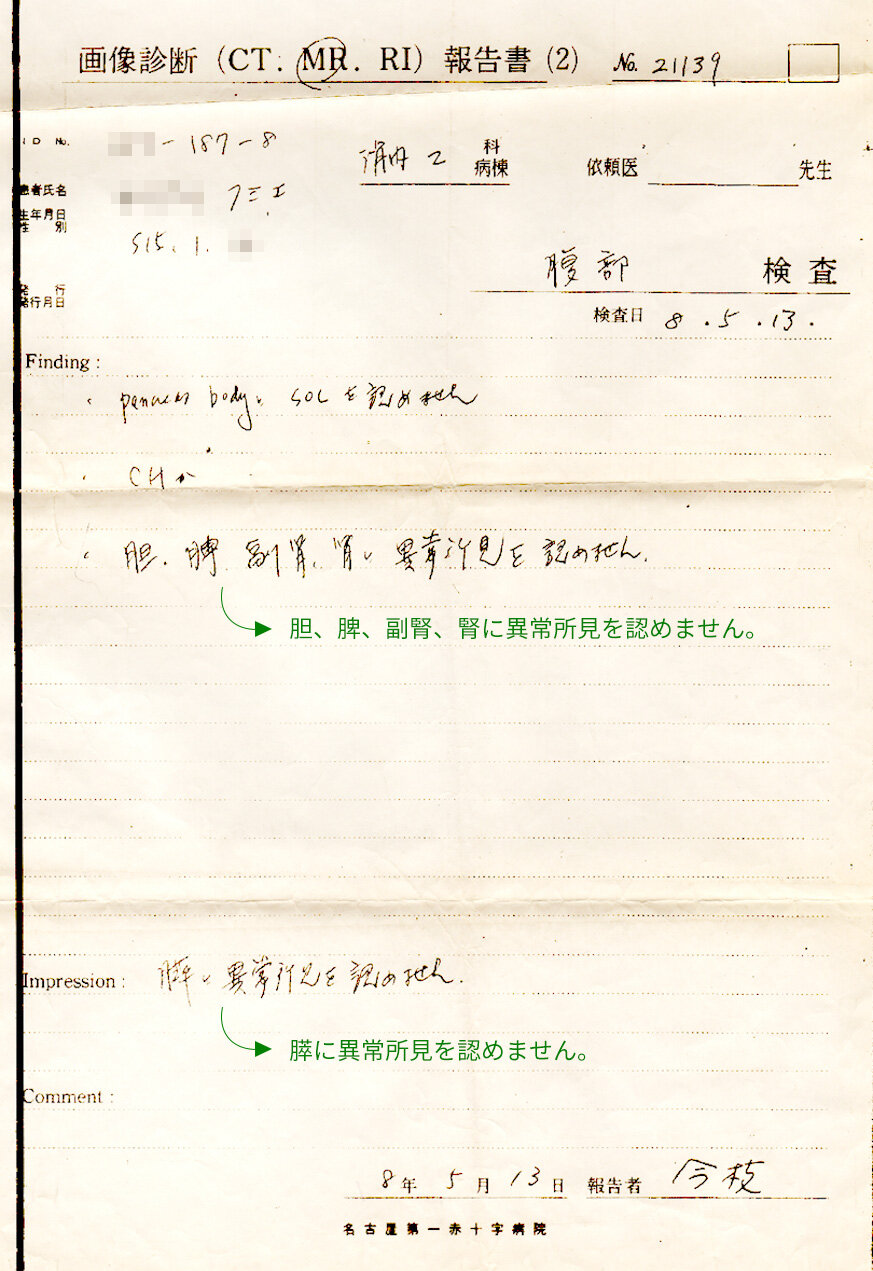 画像診断 (CT. MR. RI) 報告書 (2) No. 21139
ID No. -187-8
消内2 科
病棟 依頼医 先生
患者氏名 フミエ
生年月日
性別 S15. 1.
腹部 検査
発行
発行月日
検査日 8.5.13.
Finding :
・ pancreas body に SOL を認めません
・ CH
・ 胆、脾、副腎、腎に異常所見を認めません.
胆、脾、副腎、腎に異常所見を認めません。
Impression : 膵に異常所見を認めません.
膵に異常所見を認めません。
Comment :
8年 5月 13日 報告者 今枝
名古屋第一赤十字病院